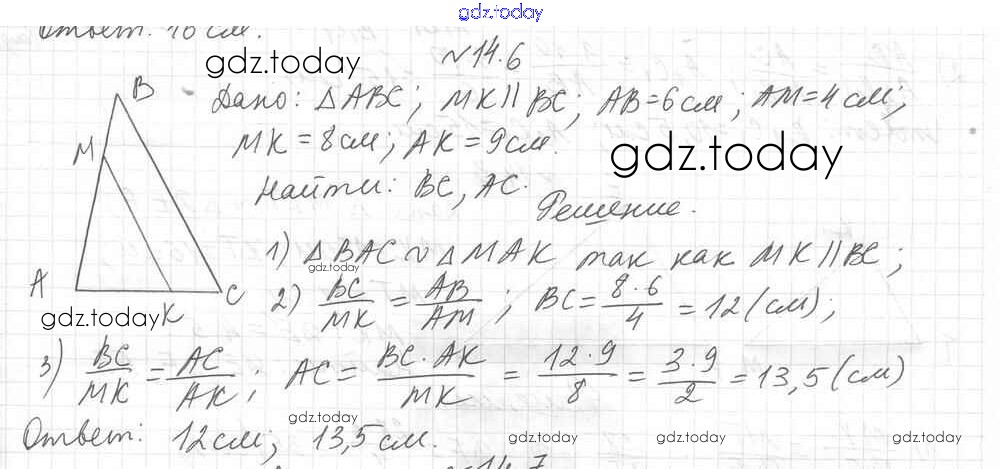 gdz.today
Ответ: 18 см.
№14.6
gdz.today
Дано: △ABC; MK || BC; AB = 6 см; AM = 4 см;
MK = 8 см; AK = 9 см.
gdz.today
Найти: BC, AC.
Решение.
B
M
A
K
C
gdz.today
1) △BAC ∾ △MAK так как MK || BC;
gdz.today
2) BC/MK = AB/AM; BC = 8·6/4 = 12 (см);
3) BC/MK = AC/AK; AC = BC·AK/MK = 12·9/8 = 3·9/2 = 13,5 (см)
gdz.today
Ответ: 12 см; 13,5 см.
gdz.today
gdz.today
gdz.today
№14.7